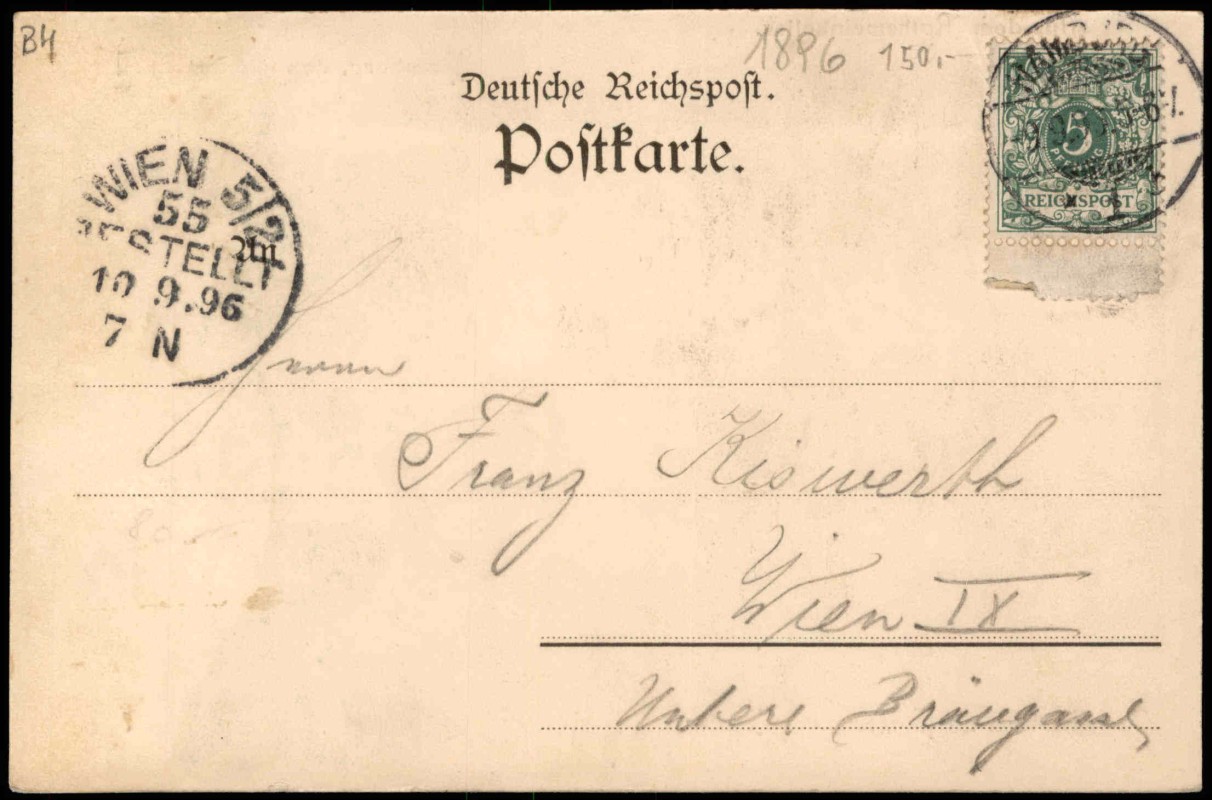 B4
1896 150,-
Deutsche Reichspost.
Postkarte.
5
REICHSPOST
WIEN 5/2
55
BESTELLT
10 9.96
7 N
An
Herrn
Franz Kiswerth
Wien IX
Untere Bräugasse